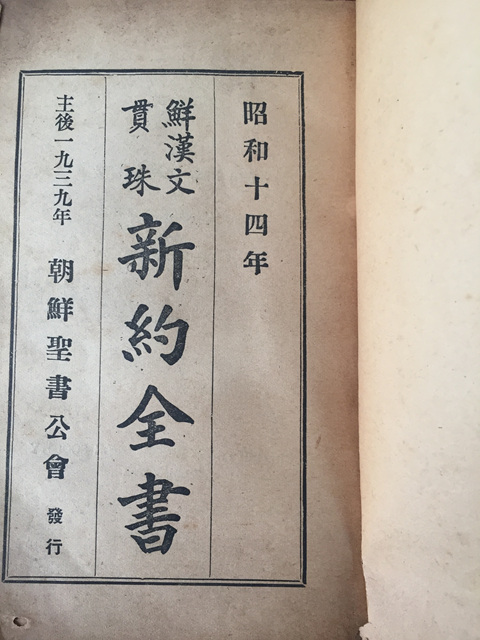 昭和十四年
鮮漢文
貫珠
新約全書
主後一九三九年 朝鮮聖書公會 發行